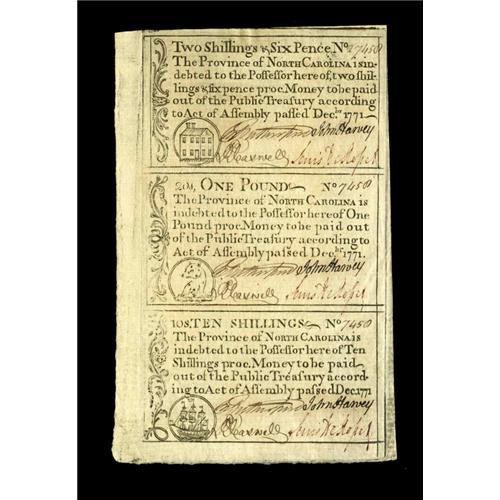 Two Shillings & Six Pence. No 7458
The Province of NORTH CAROLINA is in-
debted to the Possessor hereof, two shil-
lings & six pence proc. Money to be paid
out of the Public Treasury according
to Act of Assembly passed Decbr 1771
John Harvey
20s, ONE POUND No 7458
The Province of NORTH CAROLINA is
indebted to the Possessor hereof One
Pound proc. Money to be paid out
of the Public Treasury according to
Act of Assembly passed Decbr 1771.
John Harvey
10s. TEN SHILLINGS No 7458
The Province of NORTH CAROLINA is
indebted to the Possessor here of Ten
Shillings proc. Money to be paid
out of the Public Treasury accord-
ing to Act of Assembly passed Dec. 1771
John Harvey